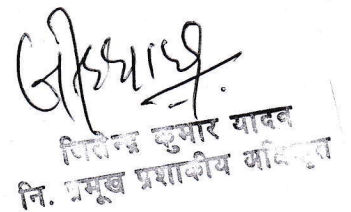 जितेन्द्र कुमार यादव
नि. प्रमूख प्रशाकीय अधिकृत